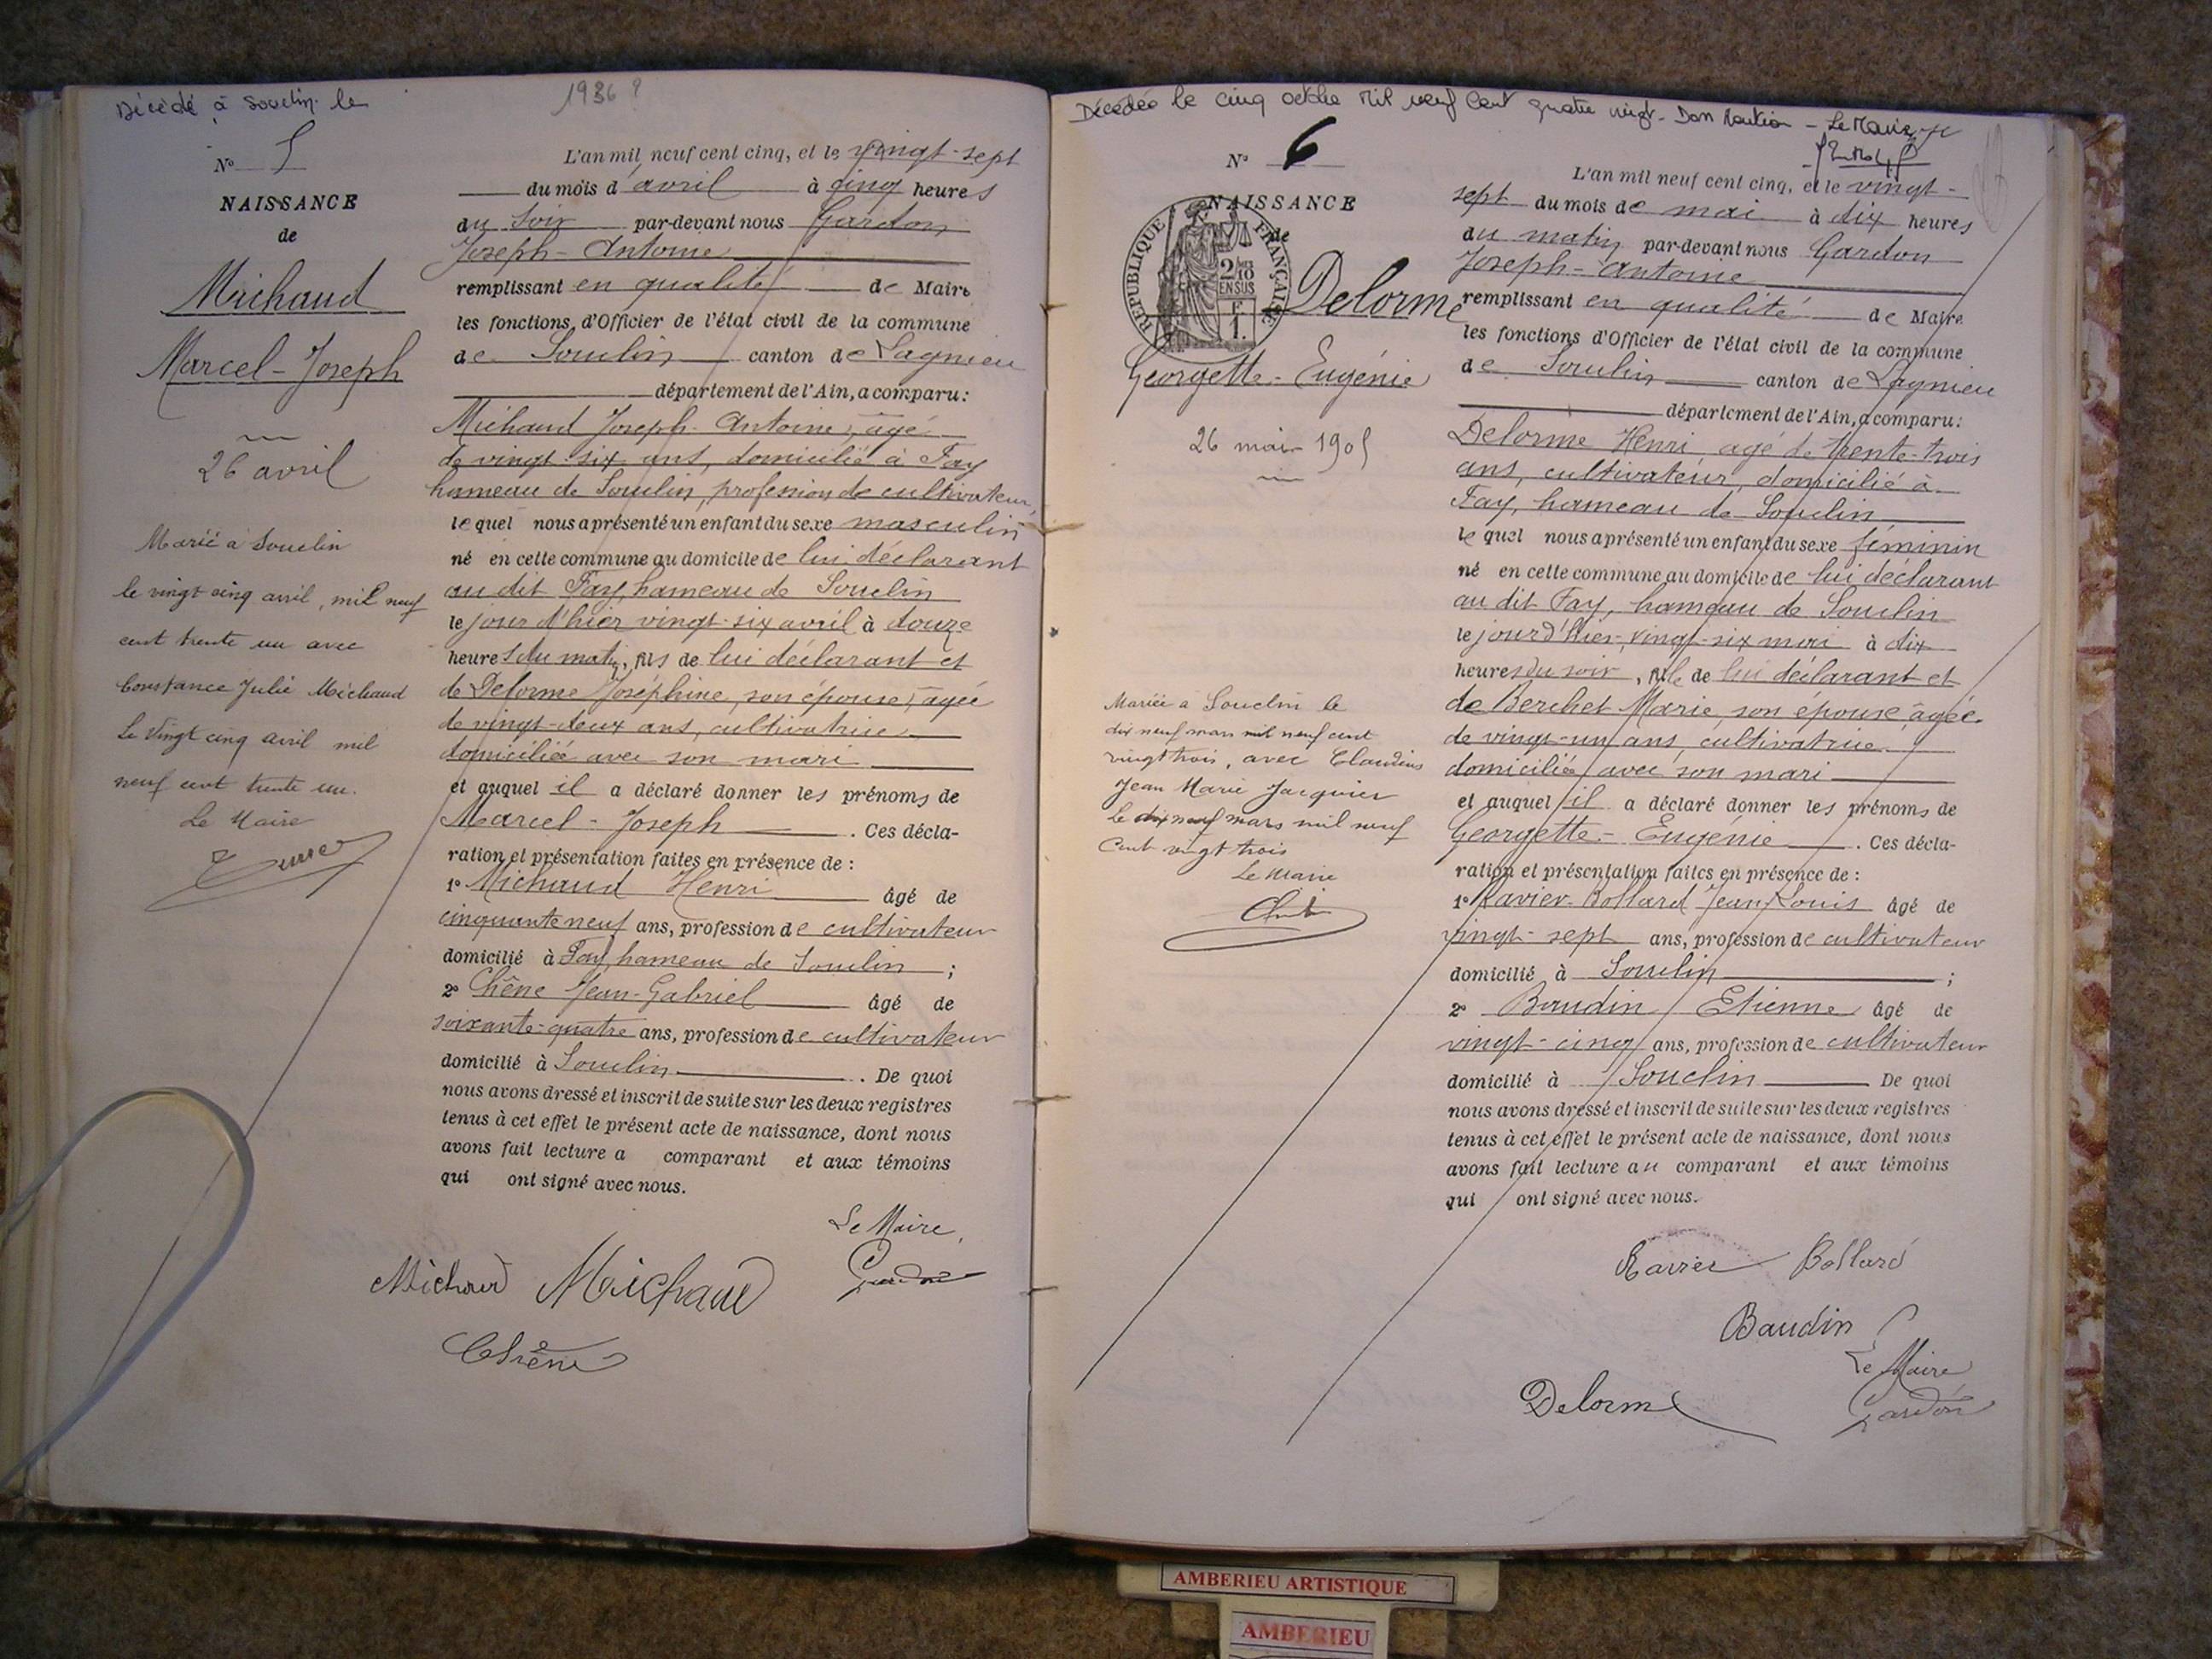 Décédé à Souclin le
1936 ?
N° 5
NAISSANCE
de
Michaud
Marcel-Joseph
26 avril
Marié à Souclin
le vingt cinq avril, mil neuf
cent trente un avec
Constance Julie Michaud
Le Vingt cinq avril mil
neuf cent trente un.
Le Maire
L'an mil neuf cent cinq, et le vingt-sept
du mois d'avril à cinq heures
du soir par-devant nous Gardon
Joseph-Antoine
remplissant en qualité de Maire
les fonctions d'Officier de l'état civil de la commune
de Souclin canton de Lagnieu
département de l'Ain, a comparu:
Michaud Joseph-Antoine, âgé
de vingt-six ans, domicilié à Fay
hameau de Souclin, profession de cultivateur,
lequel nous a présenté un enfant du sexe masculin
né en cette commune au domicile de lui déclarant
au dit Fay, hameau de Souclin
le jour d'hier vingt-six avril à douze
heures du matin, fils de lui déclarant et
de Delorme Joséphine, son épouse, âgée
de vingt-deux ans, cultivatrice
domiciliée avec son mari
et auquel il a déclaré donner les prénoms de
Marcel-Joseph. Ces décla-
ration et présentation faites en présence de :
1° Michaud Henri âgé de
cinquante neuf ans, profession de cultivateur
domicilié à Fay, hameau de Souclin ;
2° Chêne Jean-Gabriel âgé de
soixante-quatre ans, profession de cultivateur
domicilié à Souclin. De quoi
nous avons dressé et inscrit de suite sur les deux registres
tenus à cet effet le présent acte de naissance, dont nous
avons fait lecture a comparant et aux témoins
qui ont signé avec nous.
Le Maire,
Michaud Michaud Gardon
Chêne
Décédée le cinq octobre mil neuf cent quatre vingt - Dont Mention - Le Maire
N° 6
NAISSANCE
de
REPUBLIQUE FRANÇAISE
2/10
EN SUS
F.
1.
Delorme
Georgette-Eugénie
26 mai 1905
Mariée à Souclin le
dix neuf mars mil neuf cent
vingt trois, avec Claudius
Jean Marie Jacquier
Le dix neuf mars mil neuf
Cent vingt trois
Le Maire
L'an mil neuf cent cinq, et le vingt-
sept du mois de mai à dix heures
du matin par-devant nous Gardon
Joseph-Antoine
remplissant en qualité de Maire
les fonctions d'Officier de l'état civil de la commune
de Souclin canton de Lagnieu
département de l'Ain, a comparu:
Delorme Henri agé de trente-trois
ans, cultivateur, domicilié à
Fay, hameau de Souclin
lequel nous a présenté un enfant du sexe féminin
né en cette commune au domicile de lui déclarant
au dit Fay, hameau de Souclin
le jour d'hier, vingt-six mai à dix
heures du soir, fille de lui déclarant et
de Berchet Marie, son épouse âgée
de vingt-un ans, cultivatrice
domiciliée avec son mari
et auquel il a déclaré donner les prénoms de
Georgette-Eugénie. Ces décla-
ration et présentation faites en présence de :
1° Ravier-Bollard Jean Louis âgé de
vingt-sept ans, profession de cultivateur
domicilié à Souclin ;
2° Baudin Etienne âgé de
vingt-cinq ans, profession de cultivateur
domicilié à Souclin De quoi
nous avons dressé et inscrit de suite sur les deux registres
tenus à cet effet le présent acte de naissance, dont nous
avons fait lecture au comparant et aux témoins
qui ont signé avec nous.
Ravier Bollard
Baudin
Le Maire
Delorme Gardon
AMBERIEU ARTISTIQUE
AMBERIEU